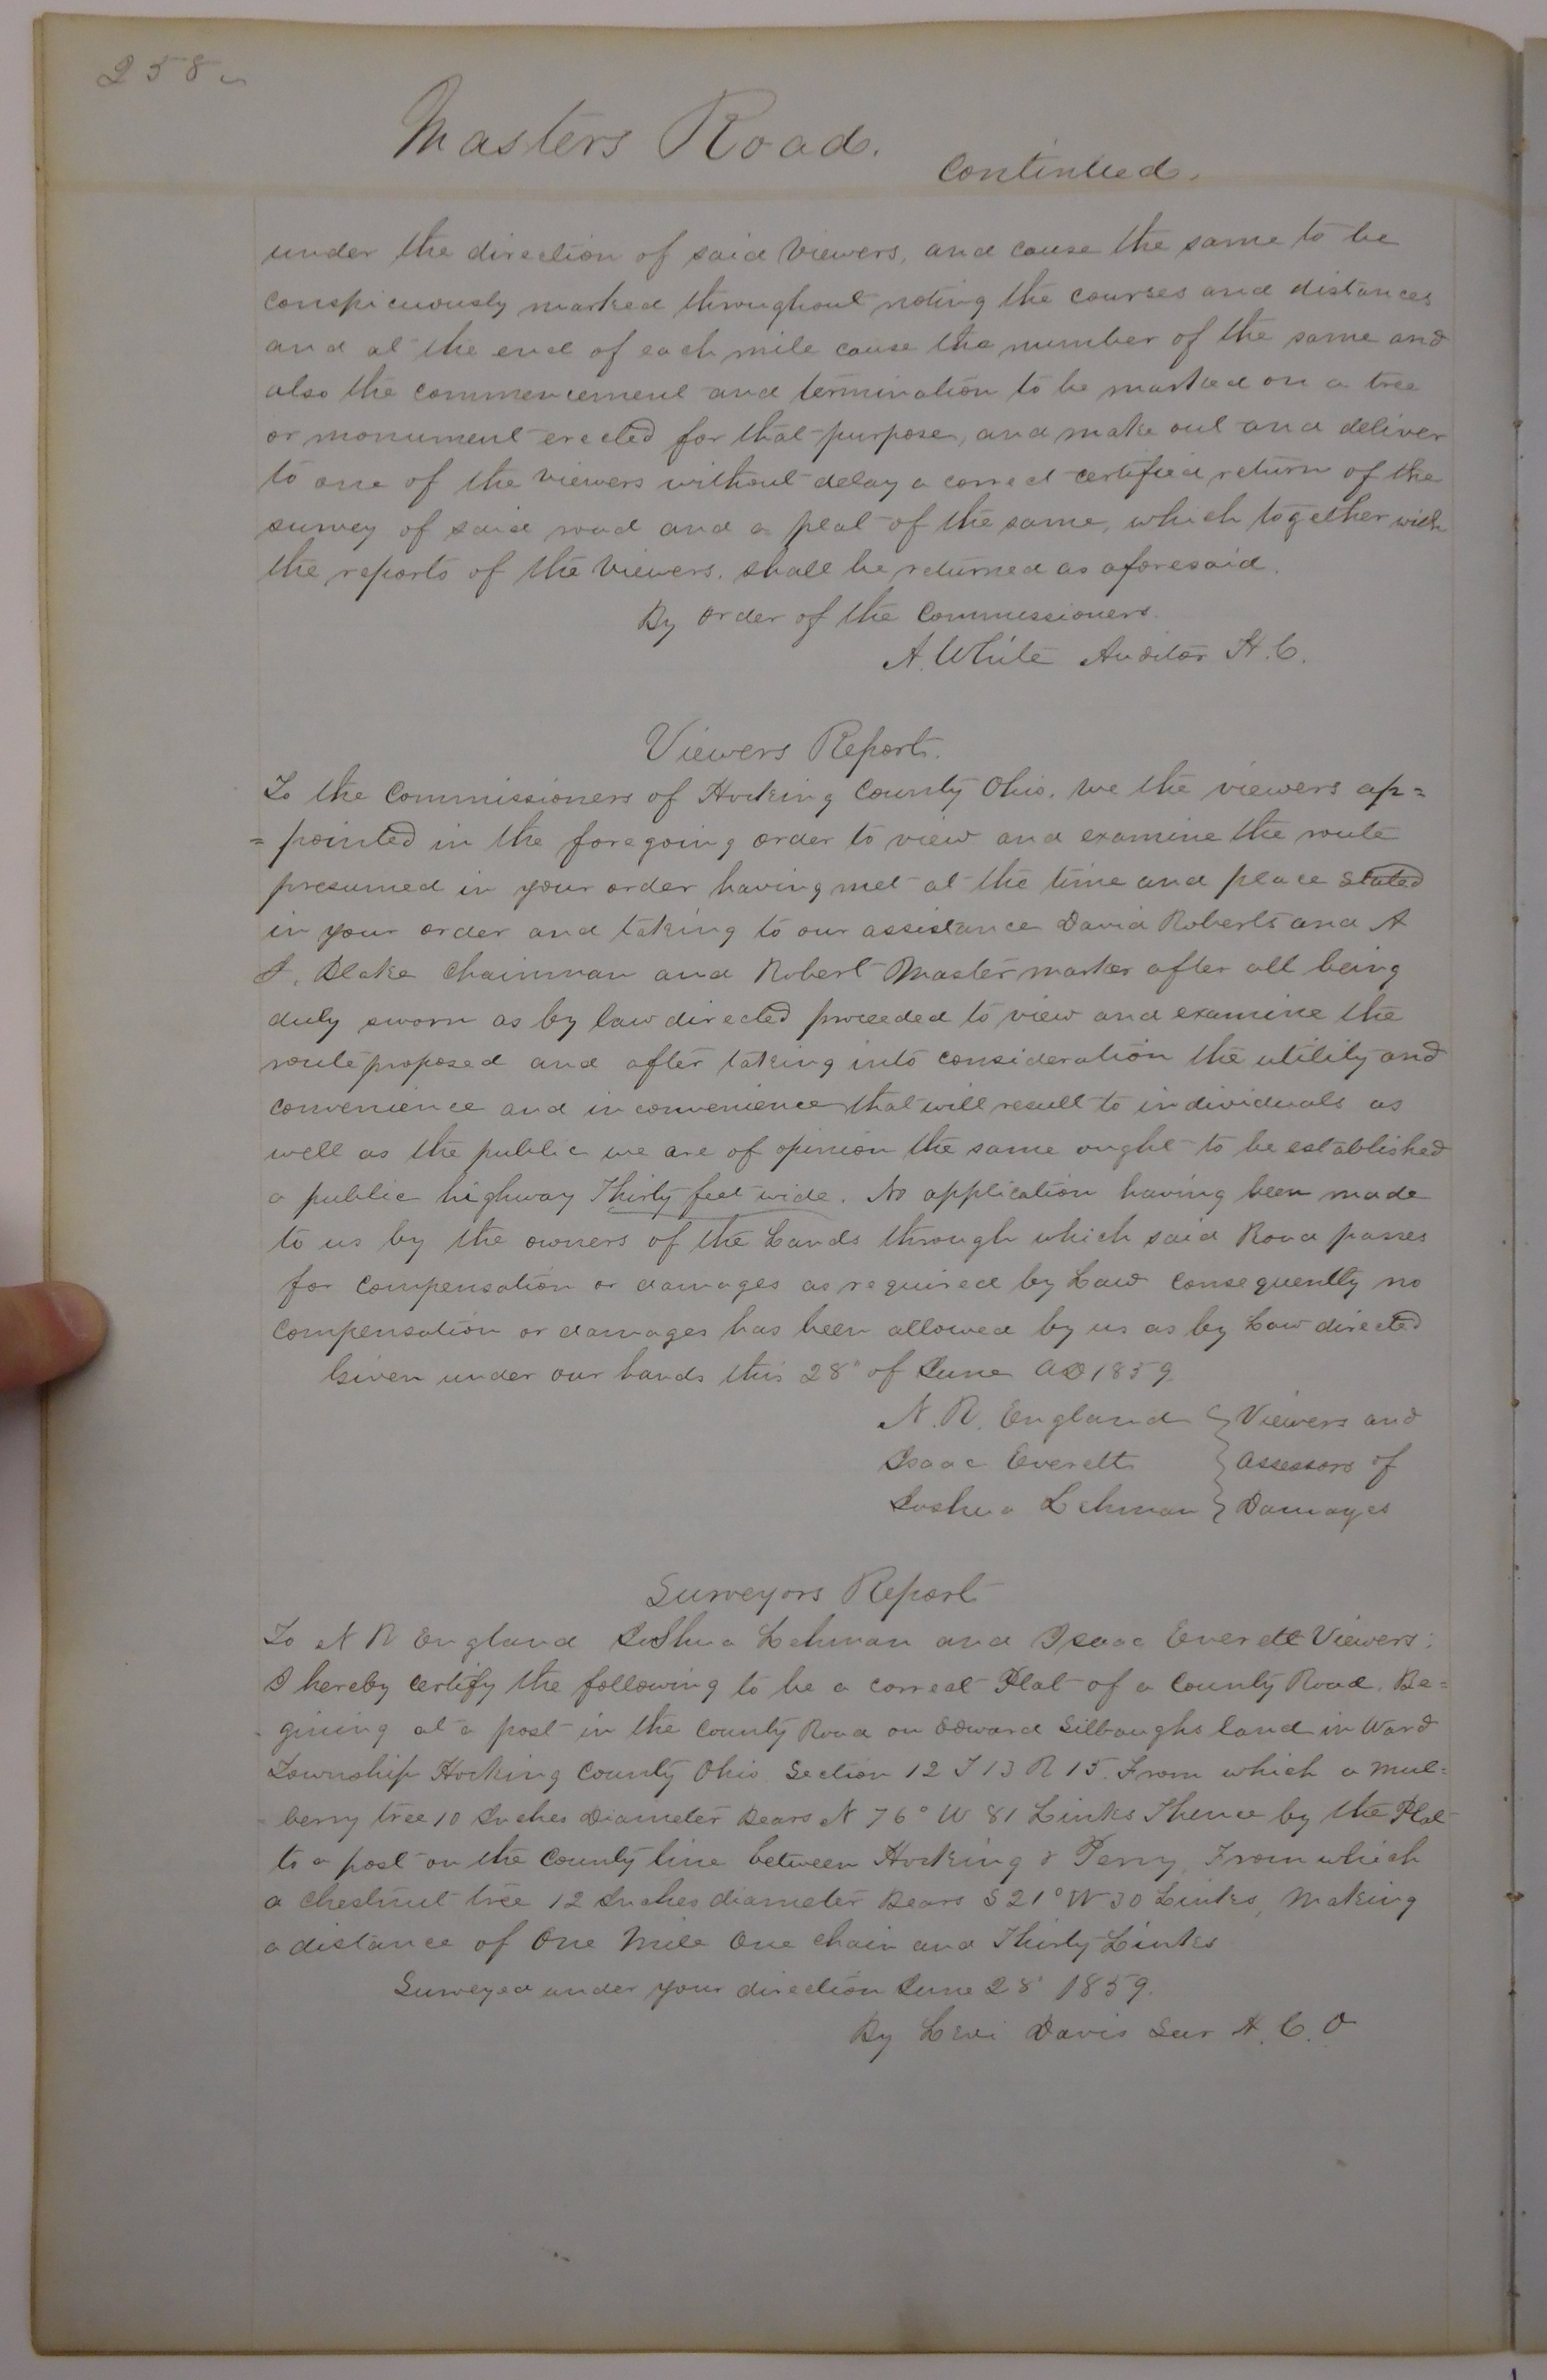 258
Masters Road.
Continued.
under the direction of said Viewers, and cause the same to be
conspicuously marked throughout noting the courses and distances
and at the end of each mile cause the number of the same and
also the commencement and termination to be marked on a tree
or monument erected for that purpose, and make out and deliver
to one of the viewers without delay a correct certified return of the
survey of said road and a plat of the same, which together with
the reports of the Viewers. shall be returned as aforesaid.
By order of the Commissioners.
A. White Auditor H. C.
Viewers Report.
To the Commissioners of Hocking County Ohio. We the viewers ap=
=pointed in the foregoing order to view and examine the route
presumed in your order having met at the time and place stated
in your order and taking to our assistance David Roberts and A
J. Blake Chainman and Robert Master marker after all being
duly sworn as by law directed proceeded to view and examine the
route proposed and after taking into consideration the utility and
convenience and inconvenience that will result to individuals as
well as the public we are of opinion the same ought to be established
a public highway Thirty feet wide. No application having been made
to us by the owners of the Lands through which said Road passes
for compensation or damages as required by Law Consequently no
Compensation or damages has been allowed by us as by Law directed
Given under our hands this 28" of June AD 1859
N. R. England } Viewers and
Isaac Everett } Assessors of
Joshua Lehman } Damages
Surveyors Report
To N R England Joshua Lehman and Isaac Everett Viewers:
I hereby certify the following to be a correct Plat of a County Road. Be=
gining at a post in the County Road on Edward Silbaughs land in Ward
Township Hocking County Ohio Section 12 T 13 R 15. From which a Mul=
berry tree 10 Inches Diameter Bears N 76° W 81 Links Thence by the Plat
to a post on the County line between Hocking & Perry, From which
a Chestnut tree 12 Inches diameter Bears S 21° W 30 Links, Making
a distance of One Mile One chain and Thirty Links
Surveyed under your direction June 28" 1859.
By Levi Davis Sur H. C. O